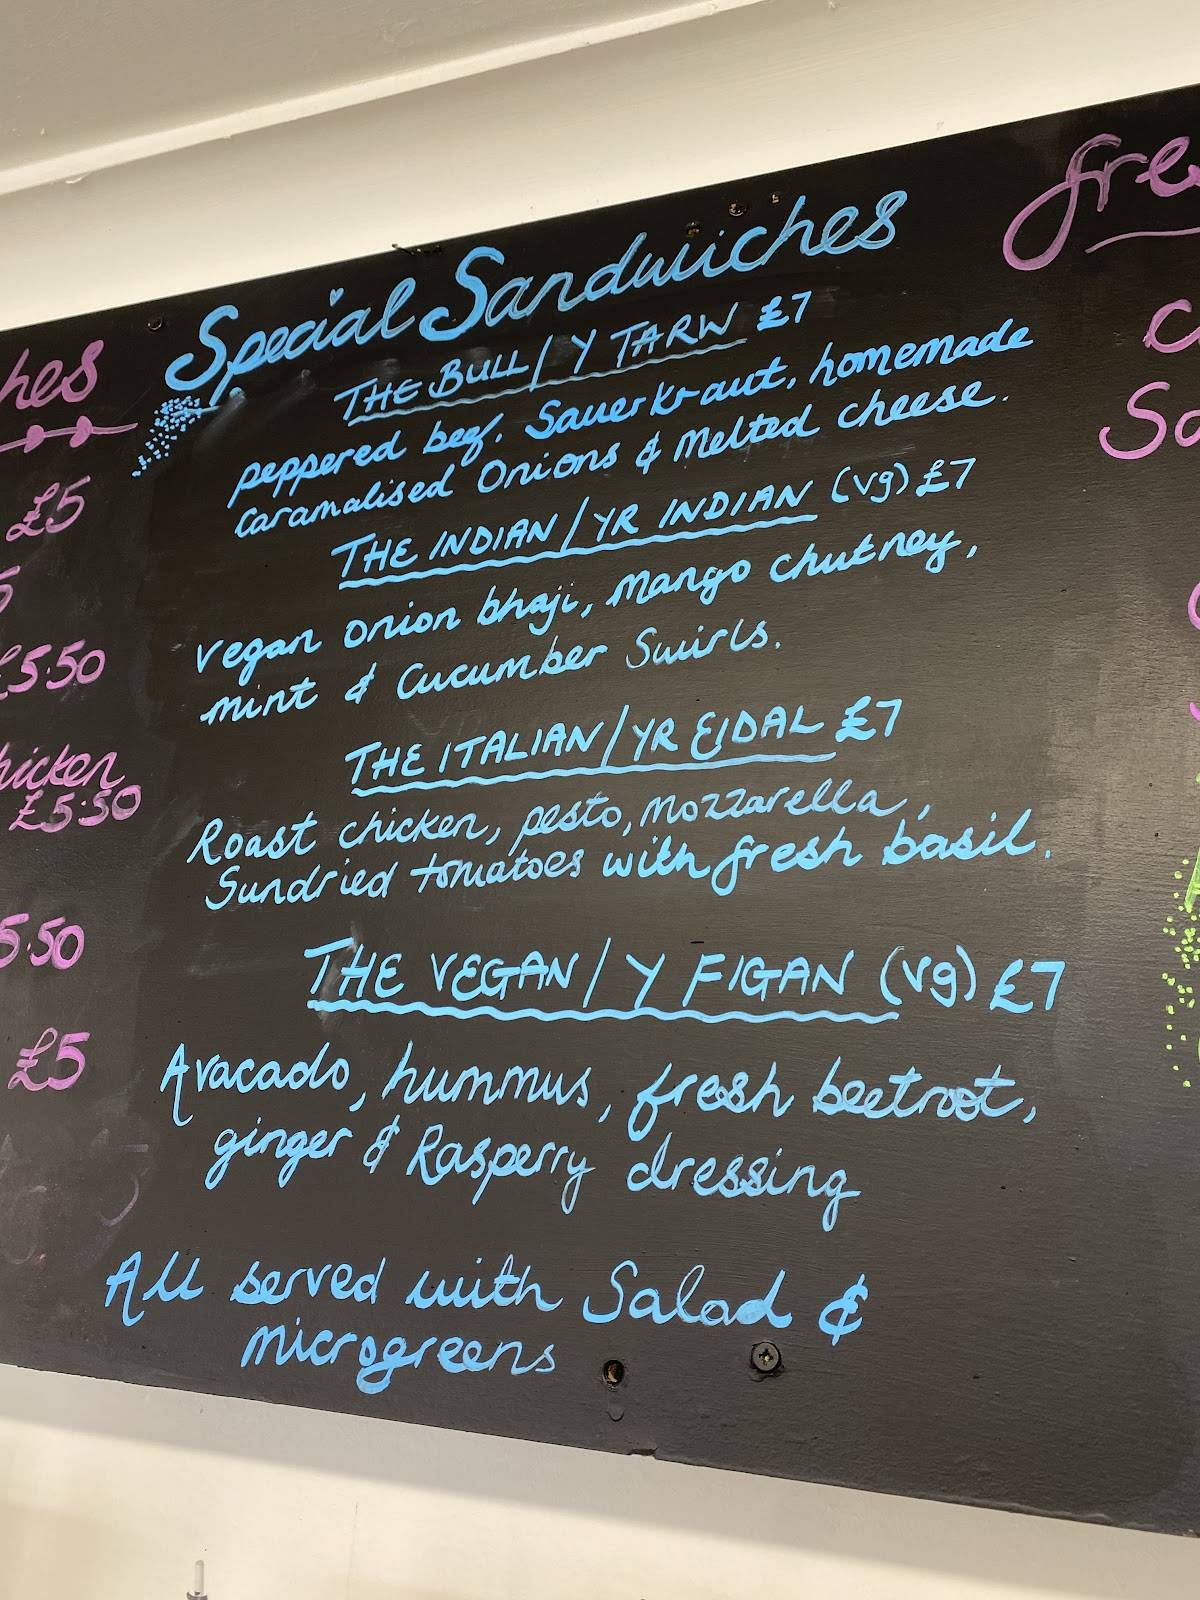 Special Sandwiches
THE BULL/Y TARW £7
peppered beef. Sauerkraut, homemade
Caramalised Onions & Melted Cheese.
THE INDIAN/YR INDIAN (vg) £7
Vegan onion bhaji, Mango chutney,
mint & Cucumber Swirls.
THE ITALIAN/YR EIDAL £7
Roast chicken, pesto, mozzarella,
Sundried tomatoes with fresh basil.
THE VEGAN/Y FIGAN (vg) £7
Avacado, hummus, fresh beetroot,
ginger & Rasperry dressing
All served with Salad &
microgreens
hes
£5
5
£5.50
hicken
£5.50
5.50
£5
fre
C
Sa